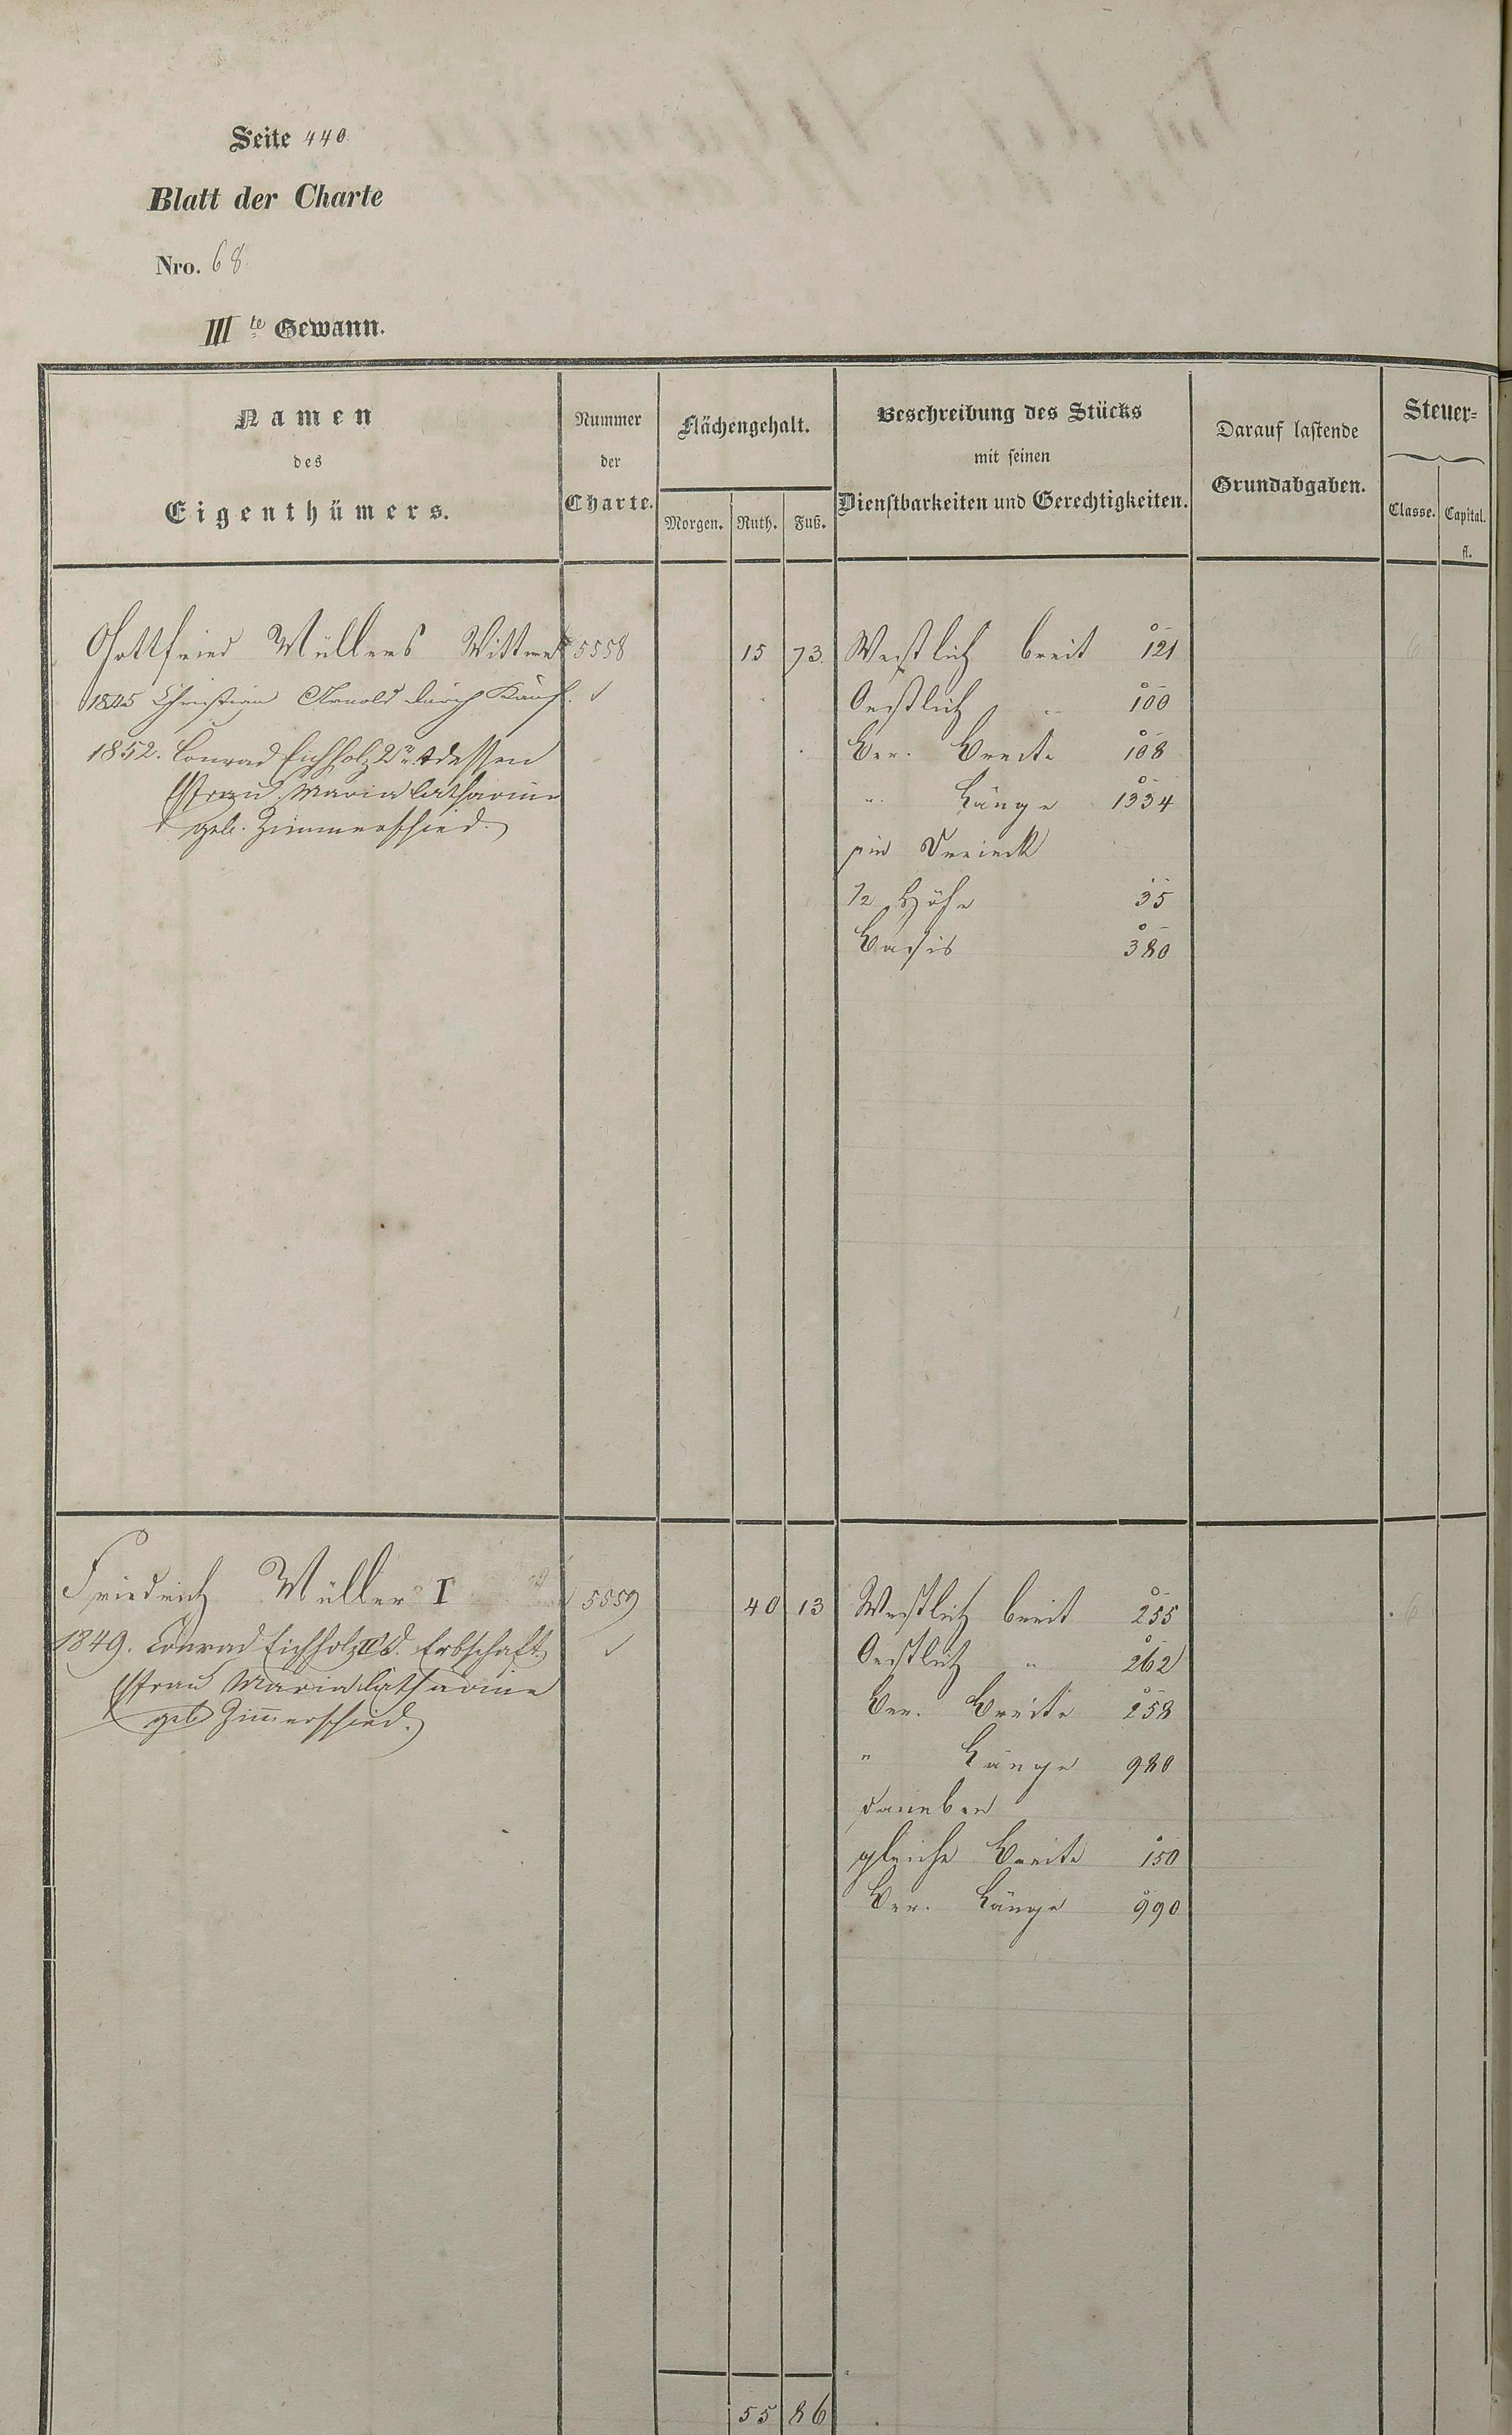 Seite 440
Blatt der Charte
Nro. 68
III te Gewann.
Namen
des
Eigenthümers.
Nummer
der
Charte.
Flächengehalt.
Morgen. Ruth. Fuß.
Beschreibung des Stücks
mit seinen
Dienstbarkeiten und Gerechtigkeiten.
Darauf lastende
Grundabgaben.
Steuer=
Classe. Capital.
fl.
Gottfried Müllers Wittwe 5558 15 73 Westlich breit 121 6
1845 Christian Arnold durch Kauf. ✓ Oestlich " 100
1852. Conrad Eichholz 2r dessen Ver. Breite 108
Frau Maria Catharine " Länge 1334
geb. Zimmerschied. ein Dreieck
1/2 Höhe 35
Basis 380
Friedrich Müller I 5559 40 13 Westlich breit 255 6
1849. Conrad Eichholz d. Erbschaft ✓ Oestlich " 262
Frau Maria Catharine Ver. Breite 258
geb Zimmerschied. " Länge 980
daneben
gleiche Breite 150
Ver. Länge 990
55 86